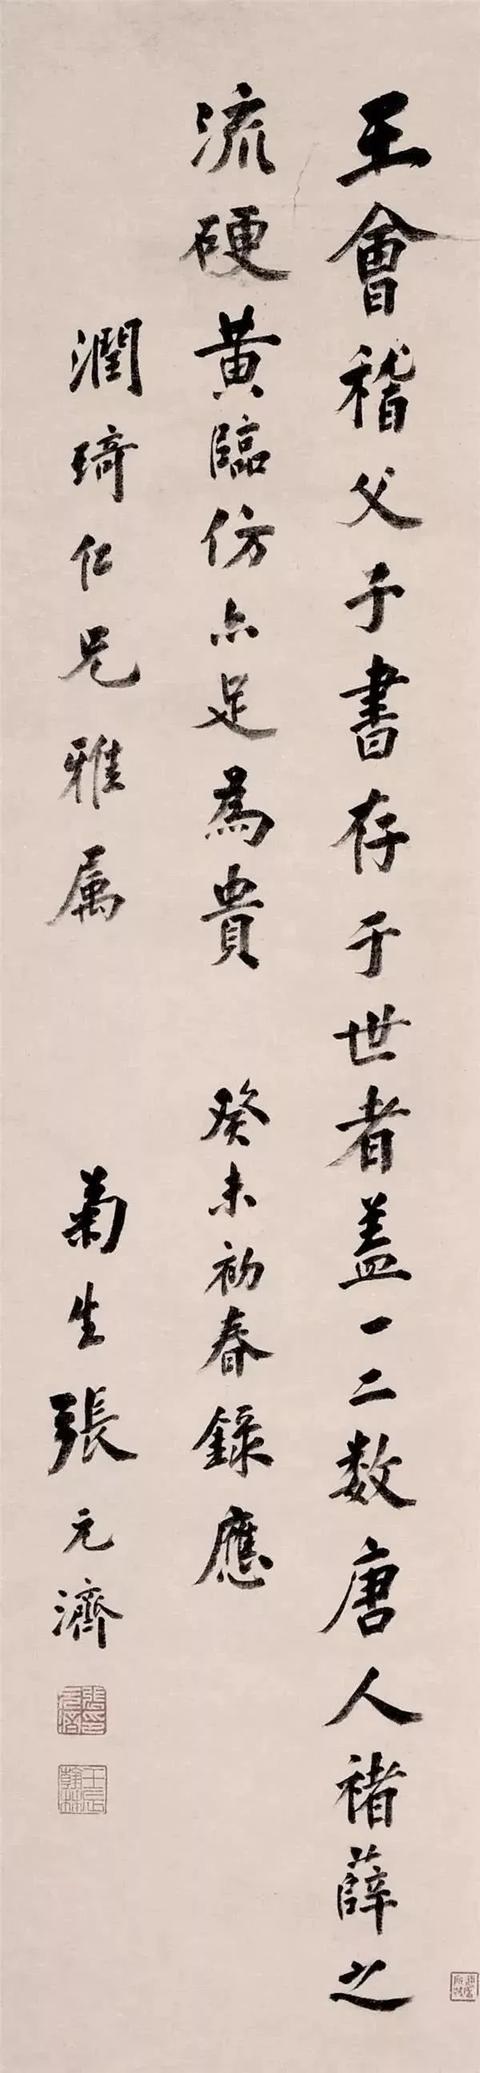 王會稽父子書存于世者盖一二数唐人褚薛之
流硬黄臨仿亦足為貴 癸未初春録應
潤琦仁兄雅属 菊生張元濟
張印元濟
壬辰翰林